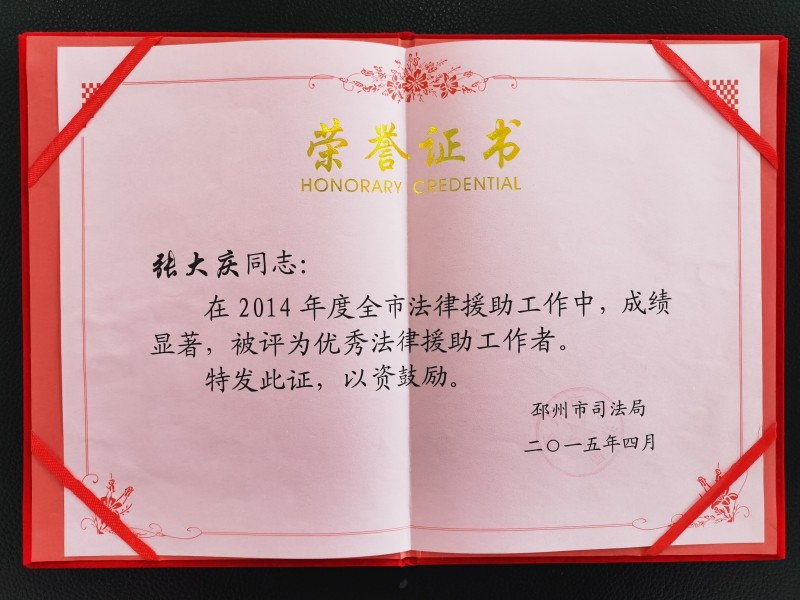 荣誉证书
HONORARY CREDENTIAL
张大庆同志：
在 2014 年度全市法律援助工作中，成绩
显著，被评为优秀法律援助工作者。
特发此证，以资鼓励。
邳州市司法局
二〇一五年四月